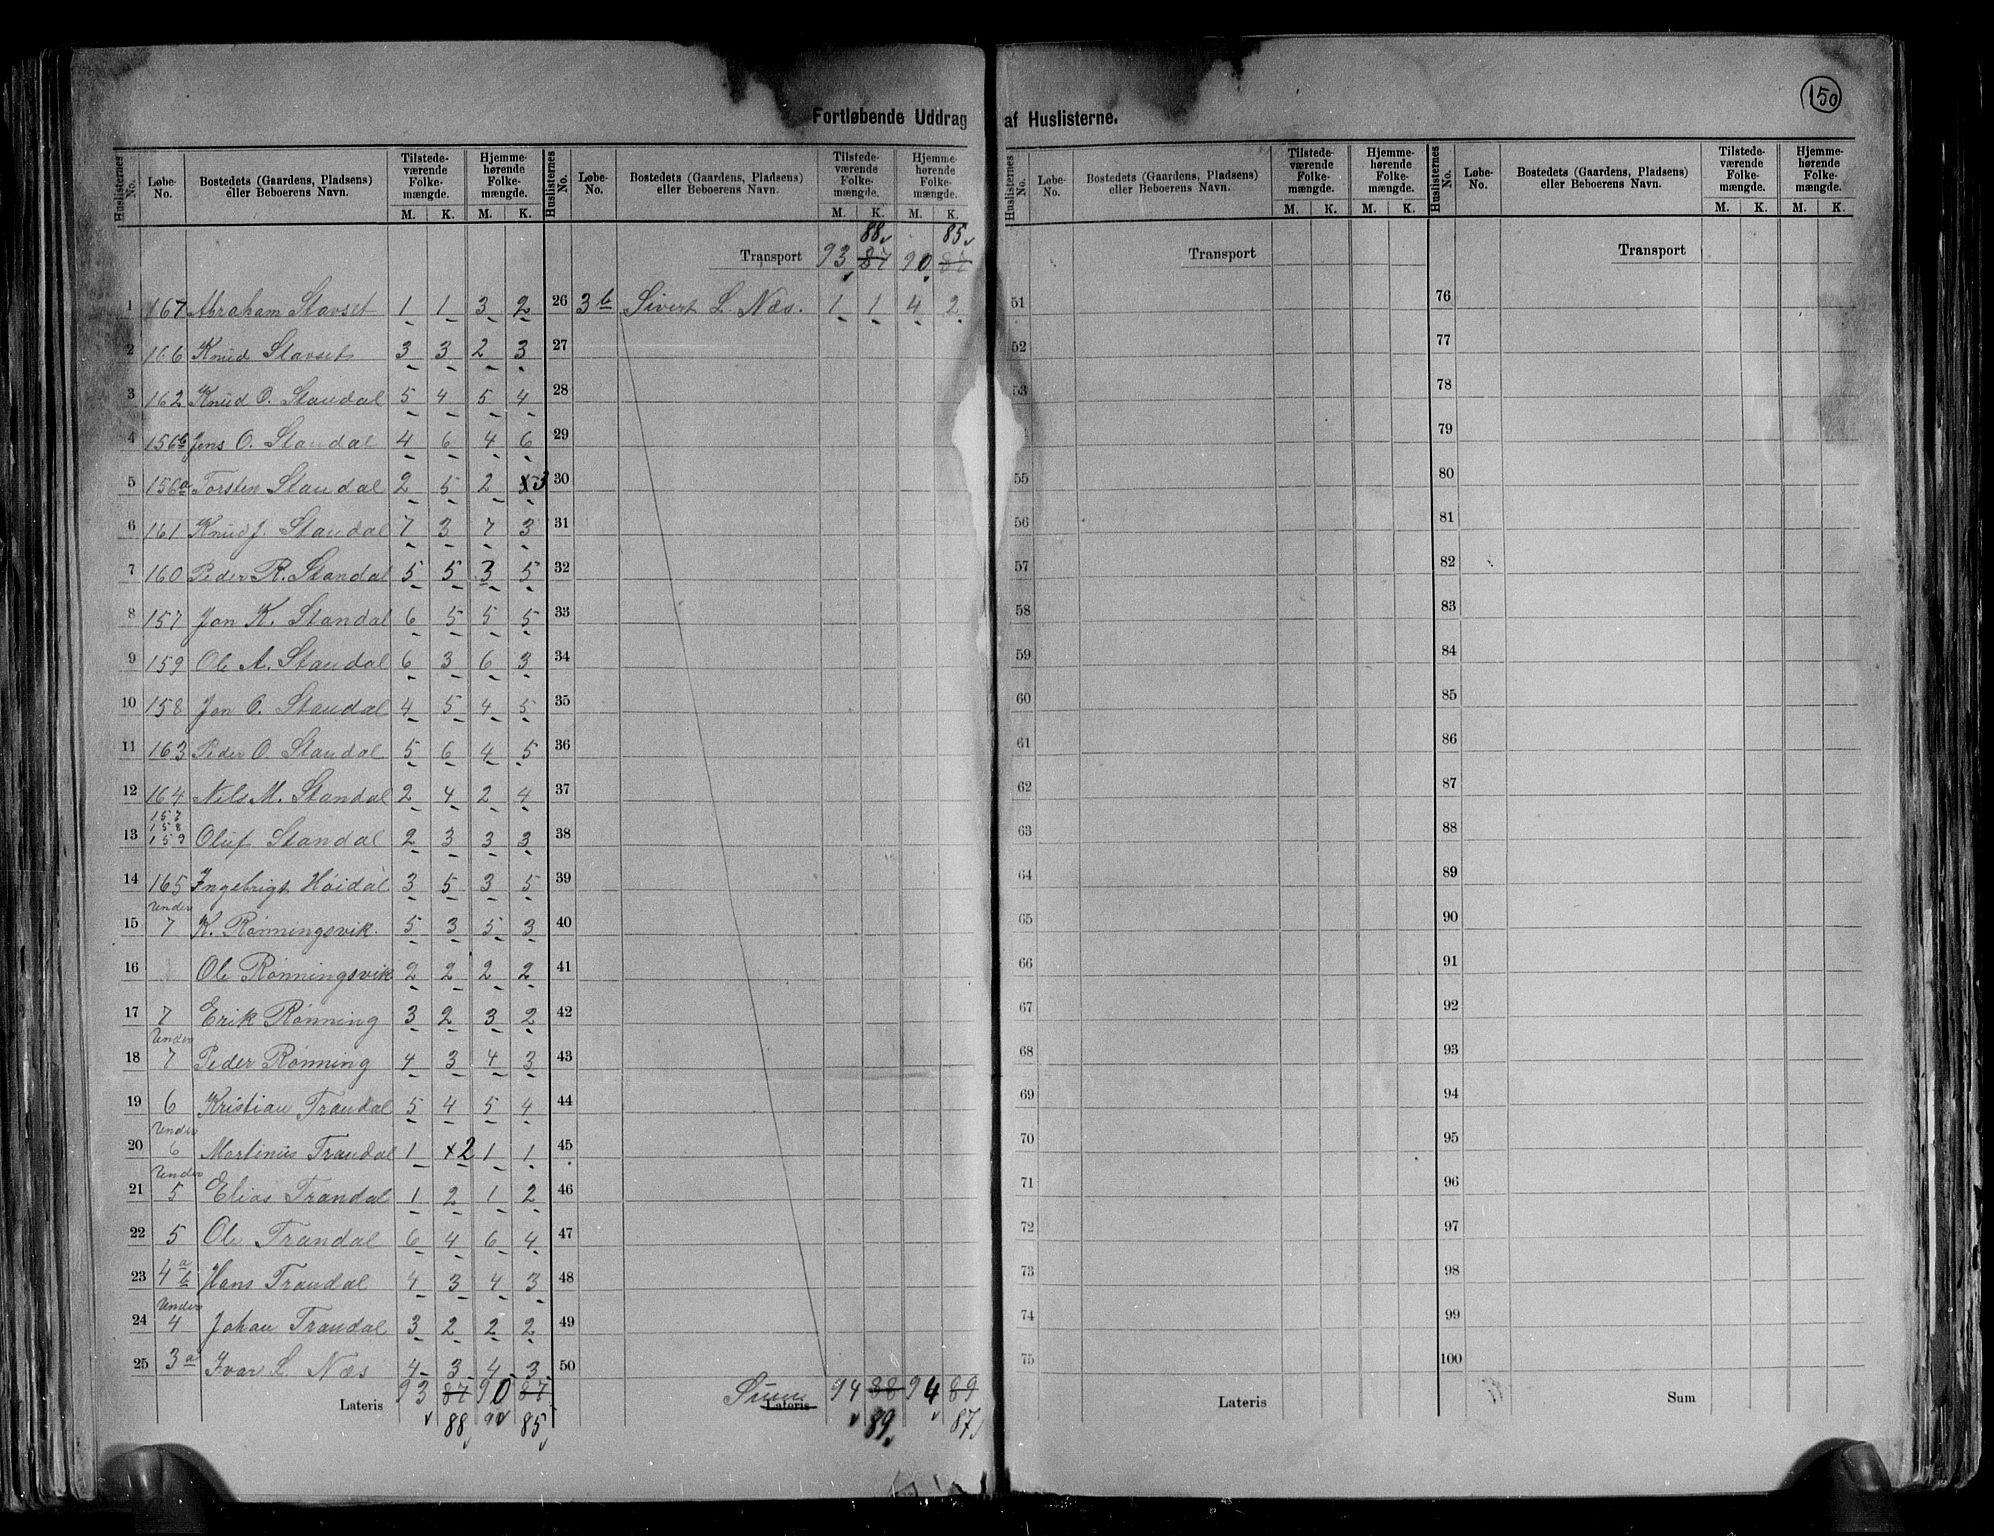 150
Fortløbende Uddrag af Huslisterne.
Huslisternes No. | Løbe-No. | Bostedets (Gaardens, Pladsens) eller Beboerens Navn. | Tilstede-værende Folke-mængde. M. K. | Hjemme-hørende Folke-mængde. M. K.
1 167 Abraham Stavset 1 1 3 2
2 166 Knud Stavset 3 3 2 3
3 162 Knud O. Standal 5 4 5 4
4 156b Jens O. Standal 4 6 4 6
5 156a Torsten Standal 2 5 2 3
6 161 Knud J. Standal 7 3 7 3
7 160 Peder R. Standal 5 5 3 5
8 157 Jon K. Standal 6 5 5 5
9 159 Ole A. Standal 6 3 6 3
10 158 Jon O. Standal 4 5 4 5
11 163 Peder O. Standal 5 6 4 5
12 164 Nils M. Standal 2 4 2 4
13 157 158 159 Oluf Standal 2 3 3 3
14 165 Ingebrigt Høidal 3 5 3 5
15 Under 7 K. Rønningsvik. 5 3 5 3
16 Ole Rønningsvik 2 2 2 2
17 7 Erik Rønning 3 2 3 2
18 Under 7 Peder Rønning 4 3 4 3
19 6 Kristian Trandal 5 4 5 4
20 Under 6 Martinus Trandal 1 2 1 1
21 Under 5 Elias Trandal 1 2 1 2
22 5 Ole Trandal 6 4 6 4
23 4 a b Hans Trandal 4 3 4 3
24 Under 4 Johan Trandal 3 2 2 2
25 3a Ivar L. Næs 4 3 4 3
Lateris 93 87 90 87
88 90 85
Huslisternes No. | Løbe-No. | Bostedets (Gaardens, Pladsens) eller Beboerens Navn. | Tilstede-værende Folke-mængde. M. K. | Hjemme-hørende Folke-mængde. M. K.
88 85
Transport 93 87 90 87
26 3b Sivert L. Næs. 1 1 4 2
27
28
29
30
31
32
33
34
35
36
37
38
39
40
41
42
43
44
45
46
47
48
49
50
Summ Lateris 94 88 94 89
89 87
Huslisternes No. | Løbe-No. | Bostedets (Gaardens, Pladsens) eller Beboerens Navn. | Tilstede-værende Folke-mængde. M. K. | Hjemme-hørende Folke-mængde. M. K.
Transport
51
52
53
55
56
57
58
59
60
61
62
63
64
65
66
67
68
69
70
71
72
73
74
75
Lateris
Huslisternes No. | Løbe-No. | Bostedets (Gaardens, Pladsens) eller Beboerens Navn. | Tilstede-værende Folke-mængde. M. K. | Hjemme-hørende Folke-mængde. M. K.
Transport
76
77
78
79
80
81
82
83
84
85
86
87
88
89
90
91
92
93
94
95
96
97
98
99
100
Sum